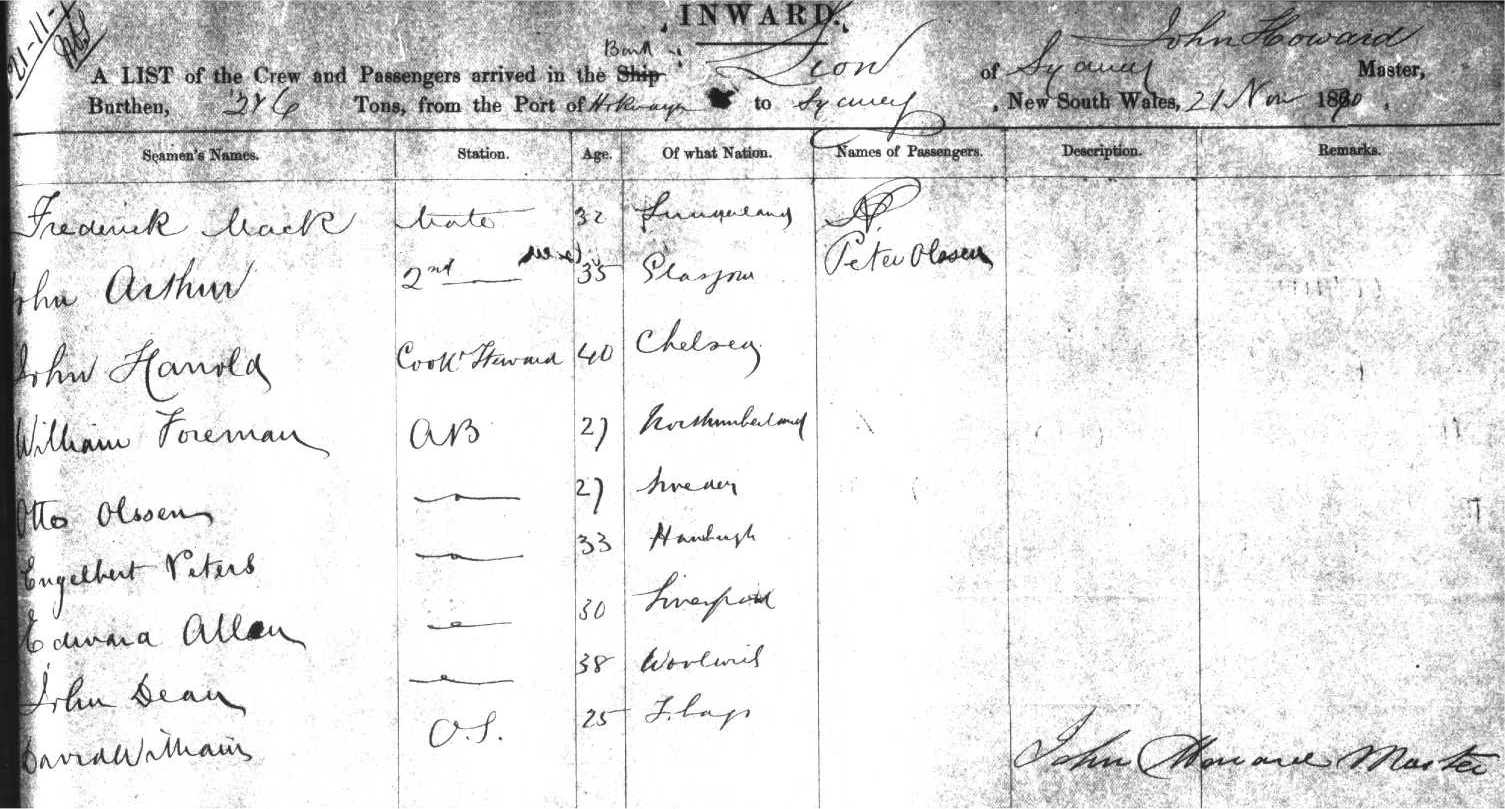 21-11-
INWARD.
John Howard
A LIST of the Crew and Passengers arrived in the Ship Bark Lion of Sydney Master,
Burthen, 286 Tons, from the Port of to Sydney, New South Wales, 21 Nov 1880.
Seamen's Names. Station. Age. Of what Nation. Names of Passengers. Description. Remarks.
Frederick Mack Mate 32
John Arthur 2nd 35 Glasgow Peter Olssen
John Harrold Cook & Steward 40 Chelsea
William Foreman AB 27 Northumberland
Otto Olssen 27 Sweden
Engelbert Peters 33 Hamburgh
Edward Allen 30 Liverpool
John Dean 38 Woolwich
David Williams O.S. 25
John Howard Master